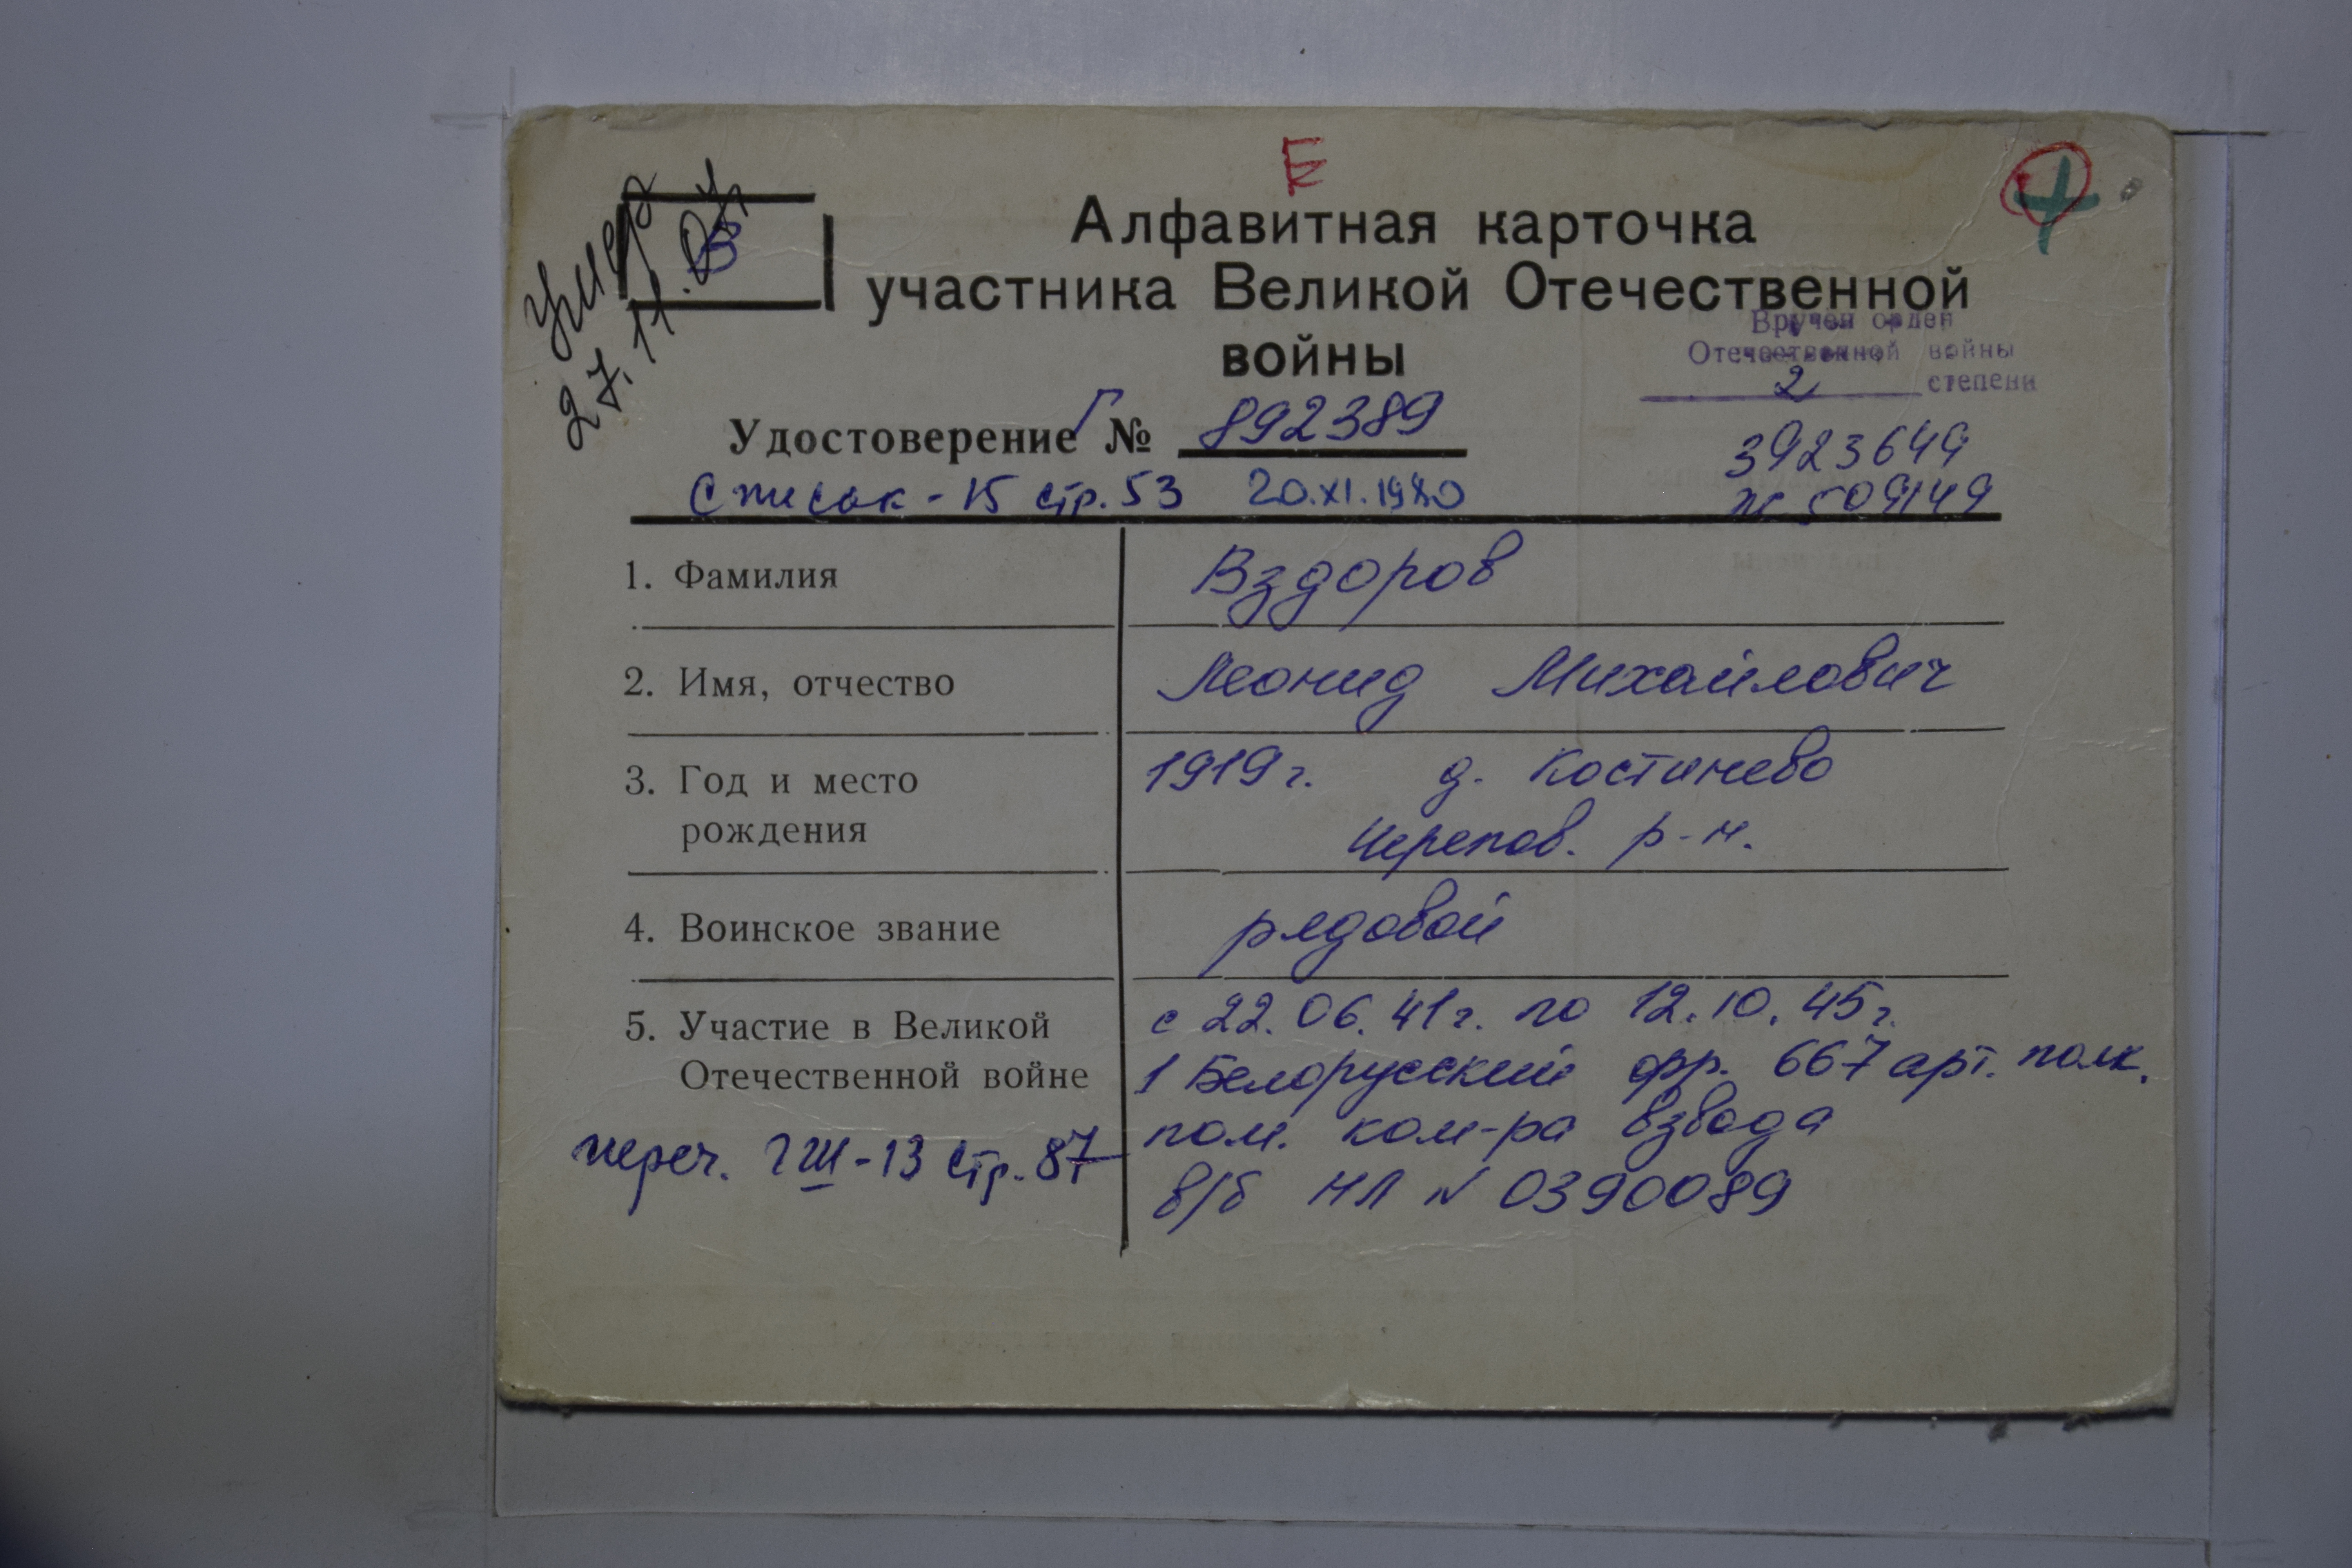 Е
Алфавитная карточка
участника Великой Отечественной
войны
В
умер
27.11.
Вручен орден
Отечественной войны
2 степени
Удостоверение Г № 892389
3923649
Список - 15 стр. 53 20.XI.1980
№ 509149
1. Фамилия Вздоров
2. Имя, отчество Леонид Михайлович
3. Год и место 1919 г. д. Костинево
рождения Черепов. р-н.
4. Воинское звание рядовой
5. Участие в Великой с 22.06.41 г. по 12.10.45 г.
Отечественной войне 1 Белорусский фр. 667 арт. полк.
пом. ком-ра взвода
переч. ГШ-13 стр. 87
в/б НЛ N 0390089